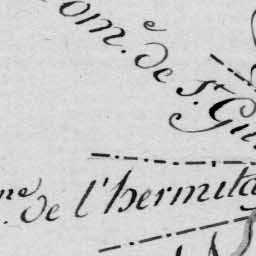 om.e de St. Gu
ne. de l'hermita